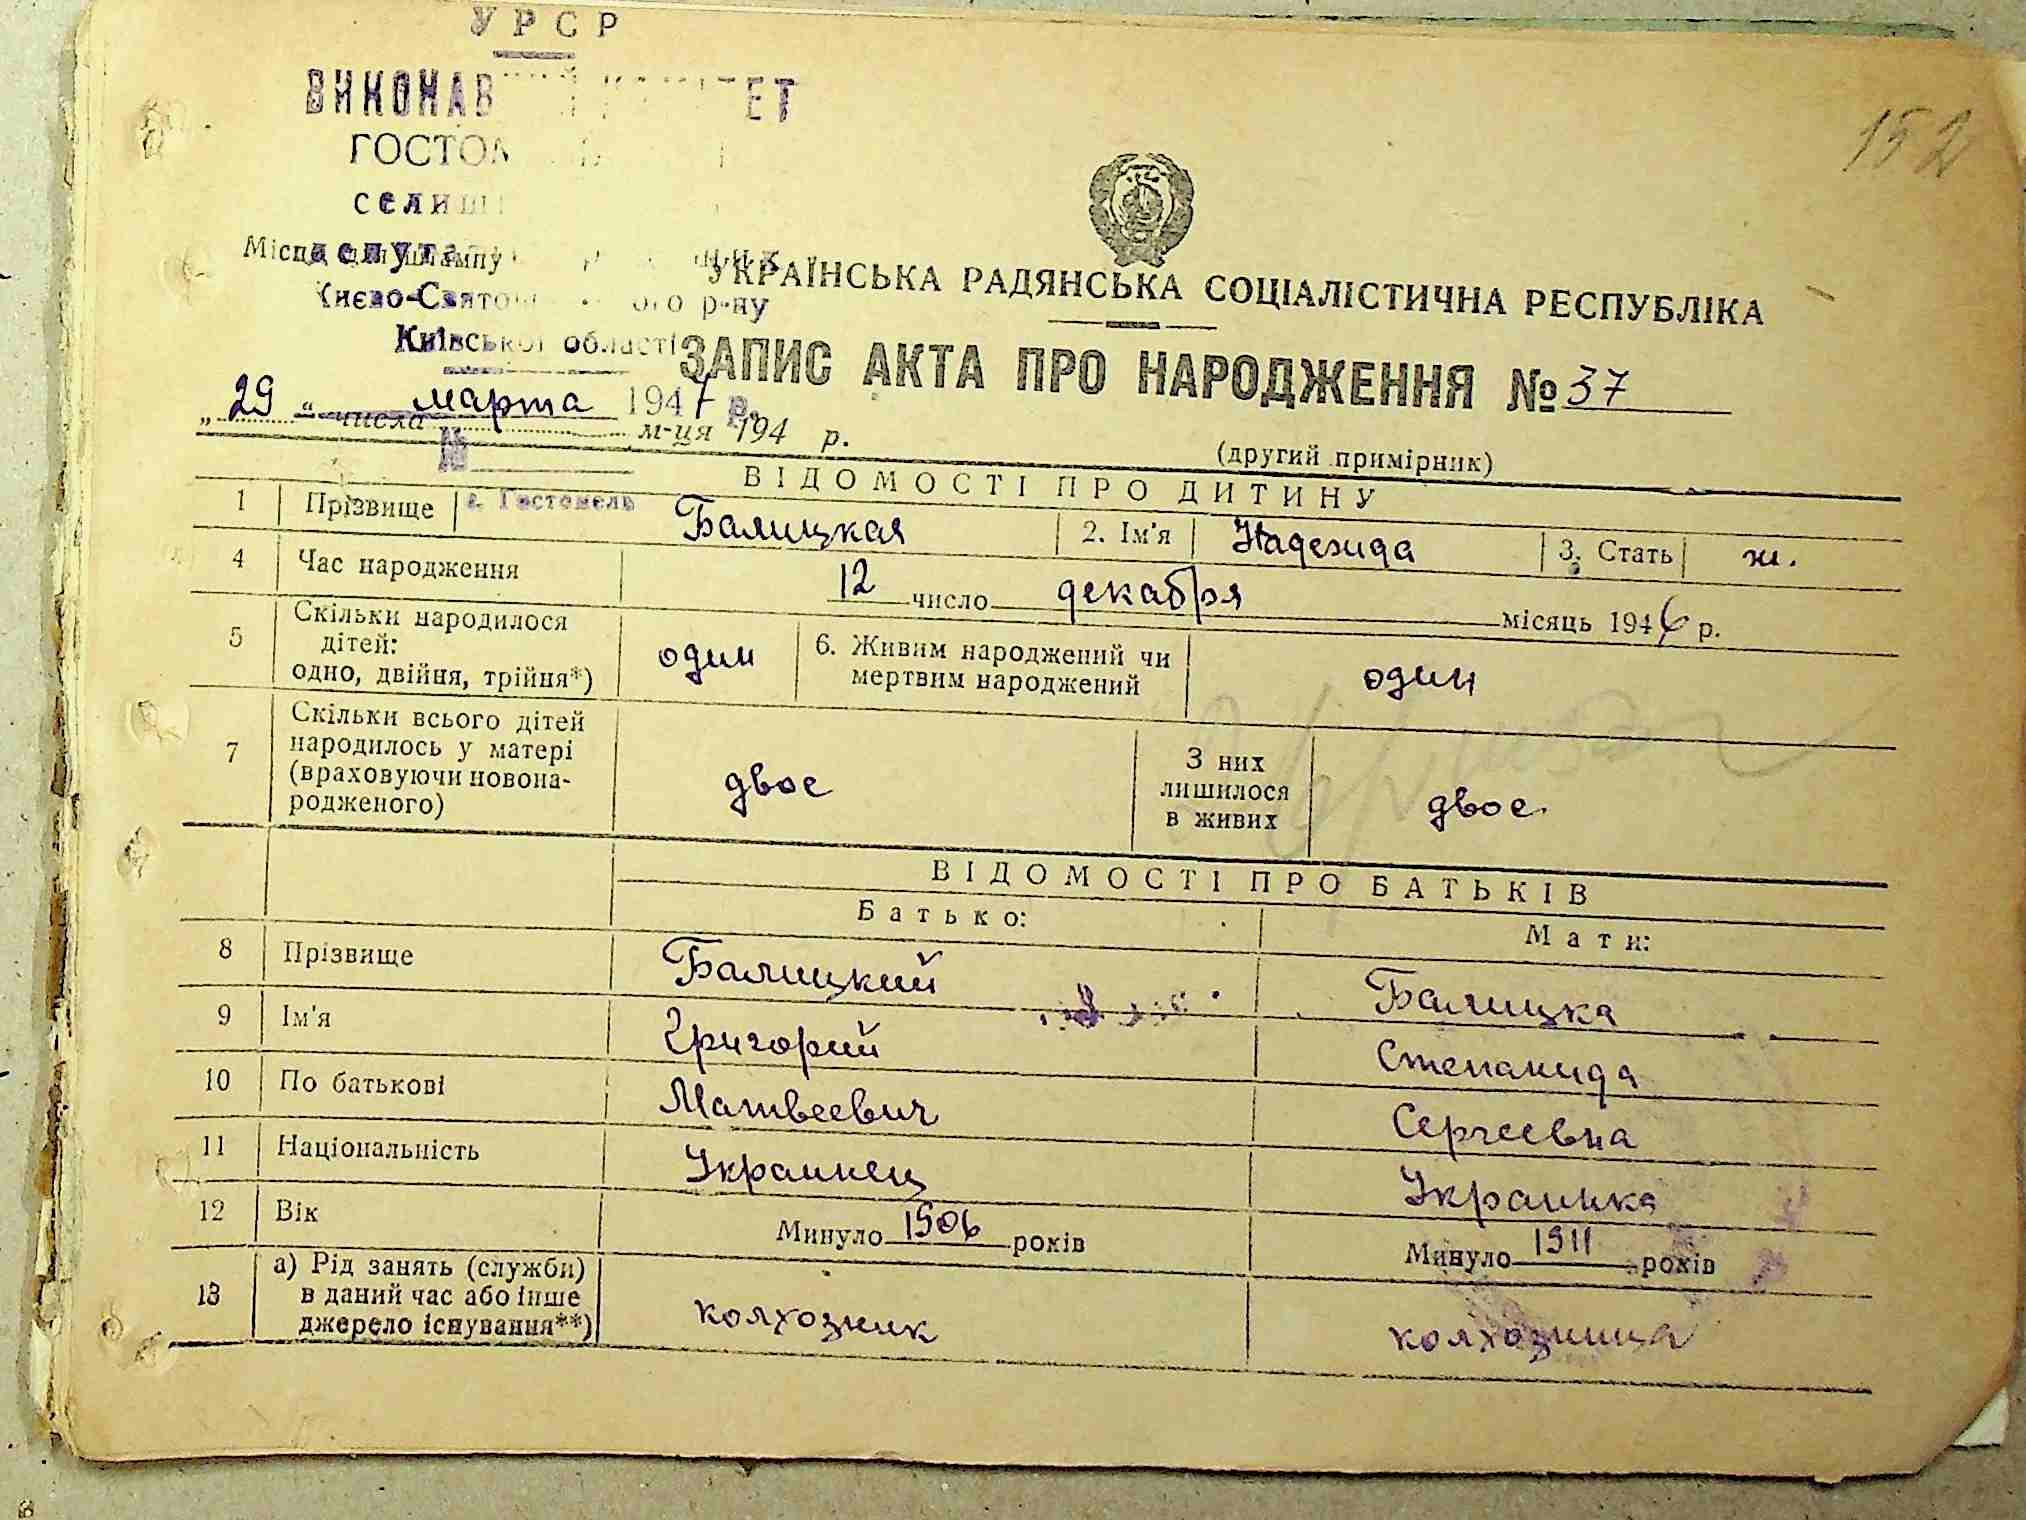 УРСР
152
ВИКОНАВ ЕТ
ГОСТОМ
селищ
Місце для штампу
депута
УКРАЇНСЬКА РАДЯНСЬКА СОЦІАЛІСТИЧНА РЕСПУБЛІКА
Києво-Свято ого р-ну
Київської області
ЗАПИС АКТА ПРО НАРОДЖЕННЯ № 37
29 " марта 1947 р.
" числа м-ця 194 р.
(другий примірник)
№
ВІДОМОСТІ ПРО ДИТИНУ
с. Гостомель
1 Прізвище Балицкая 2. Ім'я Надежида 3. Стать ж.
4 Час народження 12 число декабря місяць 1946 р.
5 Скільки народилося дітей: одно, двійня, трійня*) один 6. Живим народжений чи мертвим народжений один
7 Скільки всього дітей народилось у матері (враховуючи новонародженого) двое З них лишилося в живих двое
ВІДОМОСТІ ПРО БАТЬКІВ
Батько: Мати:
8 Прізвище Балицкий Балицка
9 Ім'я Григорий Степанида
10 По батькові Матвеевич Сергеевна
11 Національність Украинец Украинка
12 Вік Минуло 1906 років Минуло 1911 років
13 а) Рід занять (служби) в даний час або інше джерело існування**) колхозник колхозница